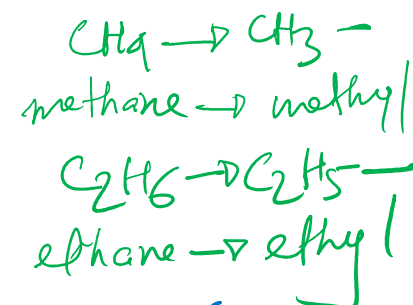 CH4 → CH3 –
methane → methyl
C2H6 → C2H5 –
ethane → ethyl